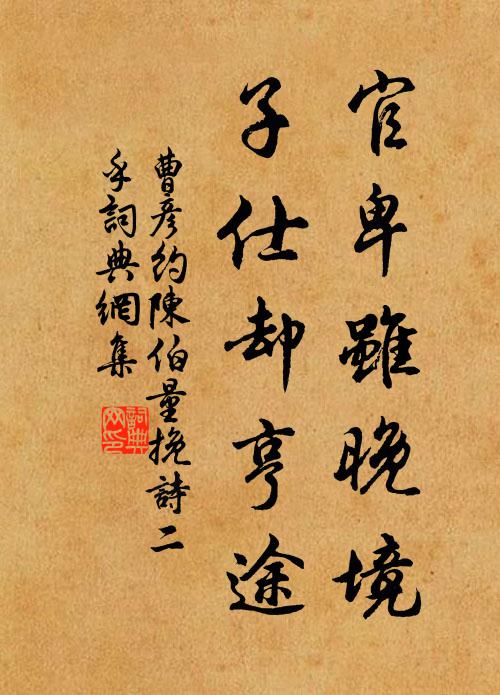 官卑雖晚境
子仕却亨途
曹彥約陳伯量挽詩二
手詞典網集
詞典